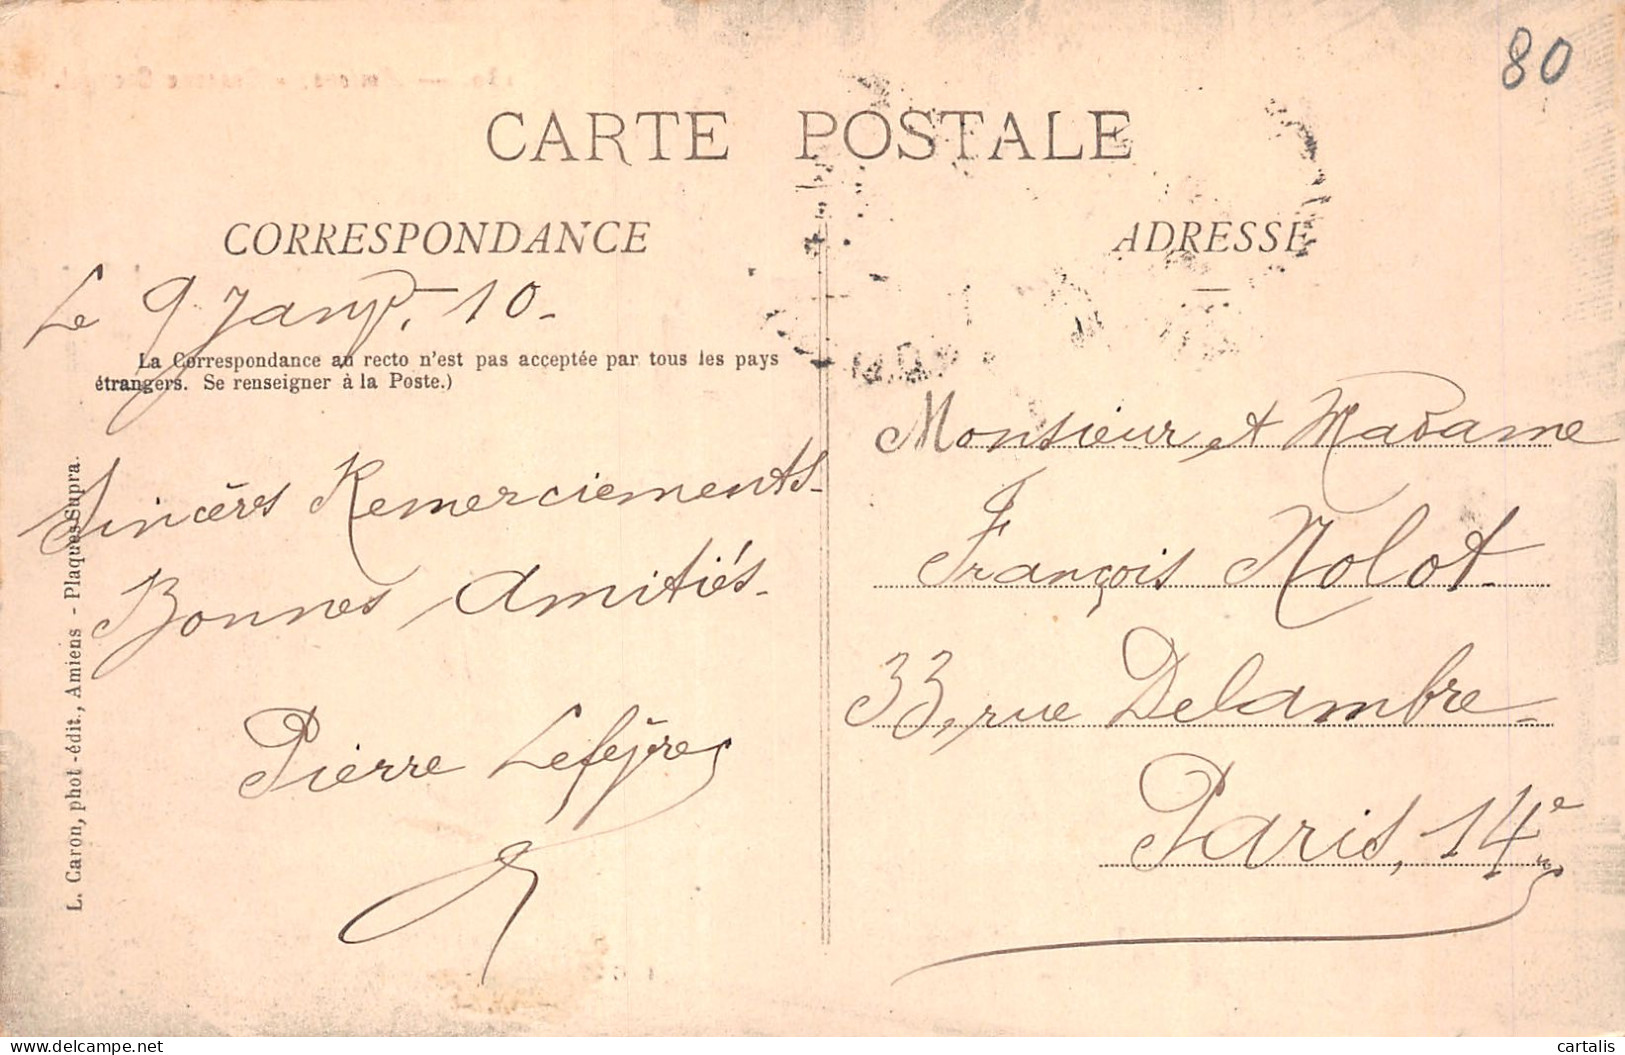 80
CARTE POSTALE
CORRESPONDANCE
Le 9 Janv. 10-
La Correspondance au recto n'est pas acceptée par tous les pays
étrangers. Se renseigner à la Poste.)
Sincères Remerciements-
Bonnes Amitiés-
Pierre Lefèvre
L. Caron, phot-édit., Amiens - Plaques Supra.
ADRESSE
Monsieur et Madame
François Nolot
33, rue Delambre-
Paris, 14e
www.delcampe.net
cartalis